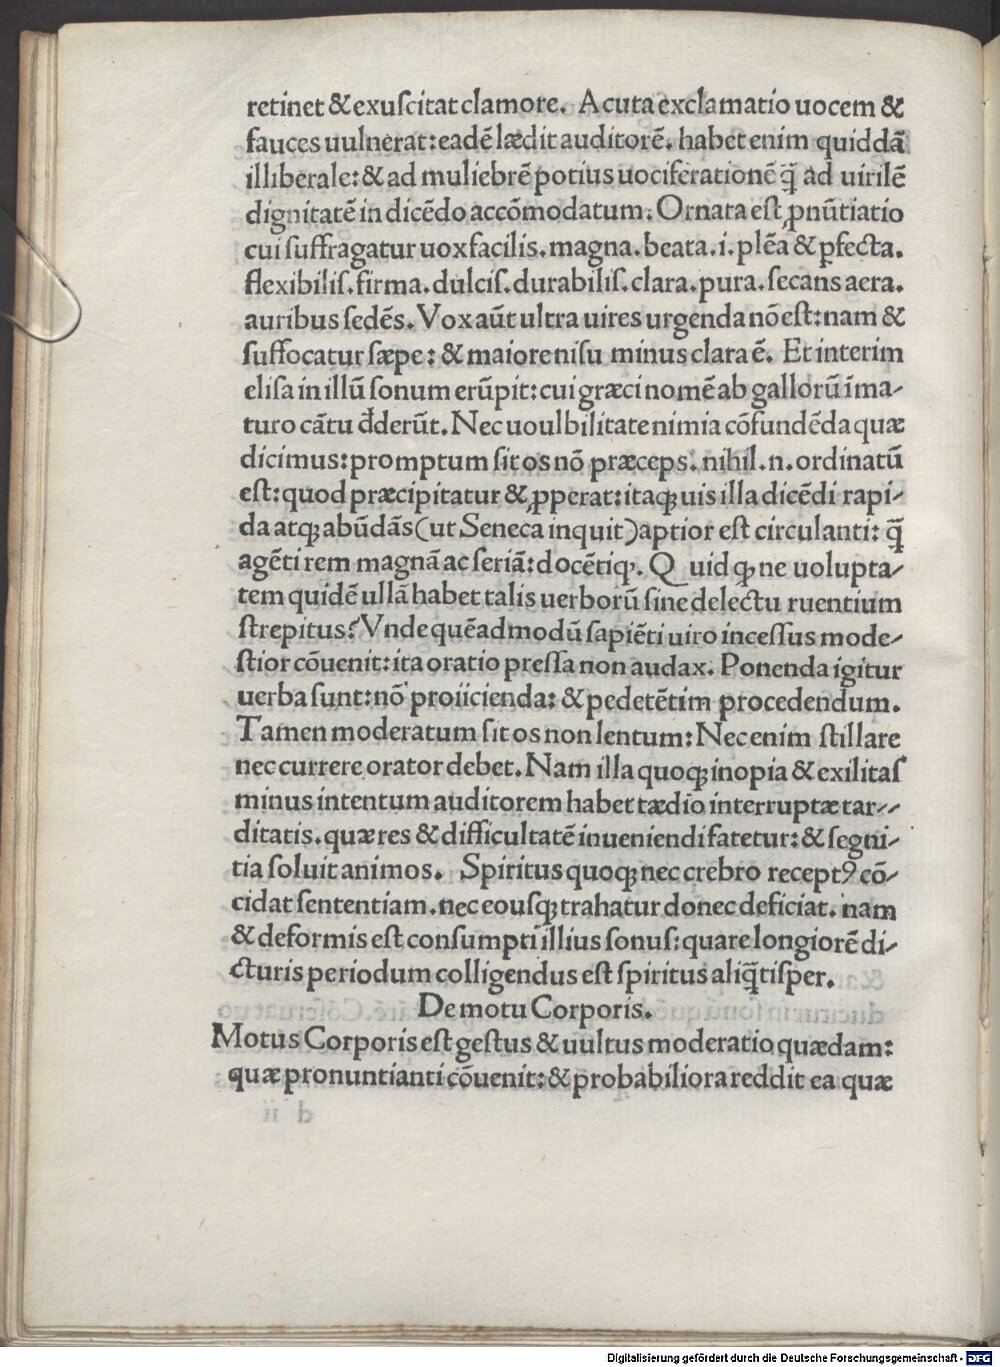 retinet & exuſcitat clamore. Acuta exclamatio uocem &
fauces uulnerat: eadē lædit auditorē. habet enim quiddā
illiberale: & ad muliebrē potius uociferationē q̄̃ ad uirilē
dignitatē in dicēdo accōmodatum. Ornata eſt ꝓnūtiatio
cui ſuffragatur uox facilis. magna. beata. i. plēa & ꝑfecta.
flexibiliſ. firma. dulciſ. durabiliſ. clara. pura. ſecans aera.
auribus ſedēs. Vox aūt ultra uires urgenda nō eſt: nam &
ſuffocatur ſæpe: & maiore niſu minus clara ē. Et interim
eliſa in illū ſonum erūpit: cui græci nomē ab gallorū īma-
turo cātu đderūt. Nec uoulbilitate nimia cōfundēda quæ
dicimus: promptum ſit os nō præceps. nihil .n. ordinatū
eſt: quod præcipitatur & ꝓperat: itaqꝫ uis illa dicēdi rapi-
da atqꝫ abūdās (ut Seneca inquit) aptior eſt circulanti: q̄̃
agēti rem magnā ac ſeriā: docētiqꝫ. Quid qꝫ ne uolupta-
tem quidē ullā habet talis uerborū ſine delectu ruentium
ſtrepitus? Vnde quēadmodū ſapiēti uiro inceſſus mode-
ſtior cōuenit: ita oratio preſſa non audax. Ponenda igitur
uerba ſunt: nō proiicienda: & pedetētim procedendum.
Tamen moderatum ſit os non lentum: Nec enim ſtillare
nec currere orator debet. Nam illa quoqꝫ inopia & exilitaſ
minus intentum auditorem habet tædio interruptæ tar--
ditatis. quæ res & difficultatē inueniendi fatetur: & ſegni-
tia ſoluit animos. Spiritus quoqꝫ nec crebro receptꝰ cō-
cidat ſententiam. nec eouſqꝫ trahatur donec deficiat. nam
& deformis eſt conſumpti illius ſonuſ: quare longiorē di-
cturis periodum colligendus eſt ſpiritus aliq̄̃tiſper.
De motu Corporis.
Motus Corporis eſt geſtus & uultus moderatio quædam:
quæ pronuntianti cōuenit: & probabiliora reddit ea quæ
Digitalisierung gefördert durch die Deutsche Forschungsgemeinschaft - DFG